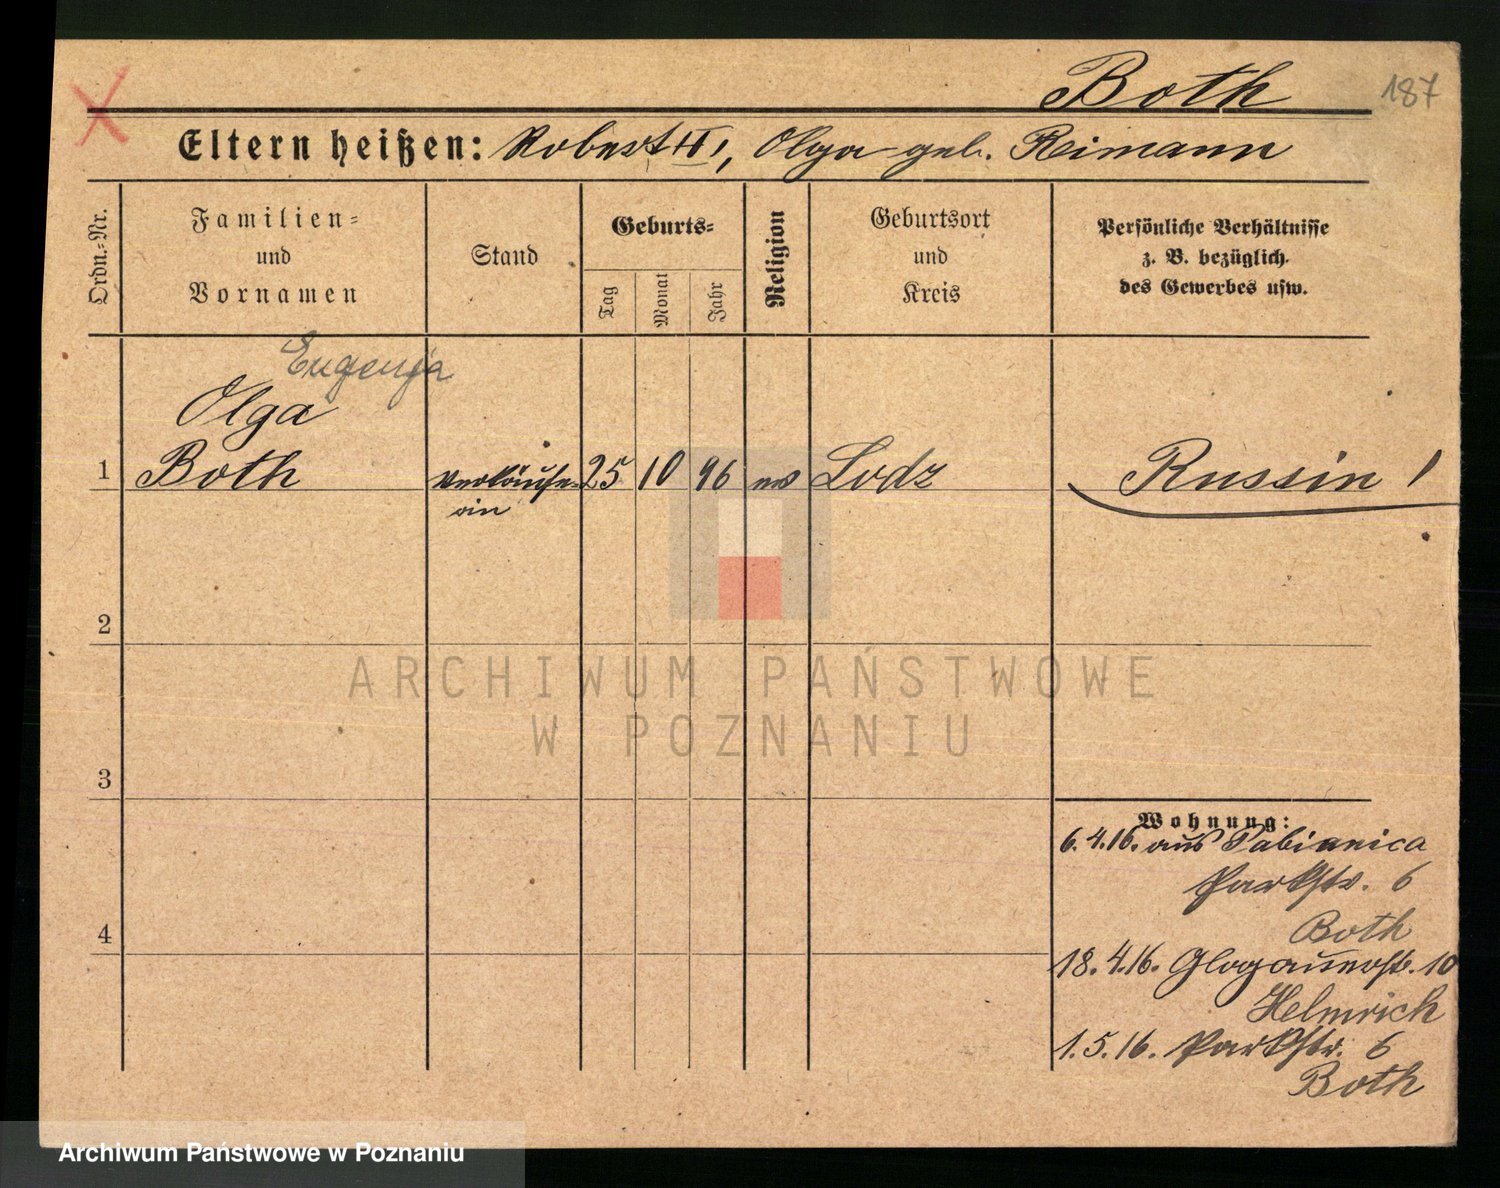 Both
187
Eltern heißen: Robert II, Olga geb. Reimann
Ordn.=Nr.
Familien=
und
Vornamen
Stand
Geburts=
Tag
Monat
Jahr
Religion
Geburtsort
und
Kreis
Persönliche Verhältnisse
z. B. bezüglich.
des Gewerbes usw.
Eugenja
Olga
1 Both Verkäufe= 25 10 96 ev Lodz Russin!
rin
2
3
4
Wohnung:
6.4.16. aus Pabianica
Parkstr. 6
Both
18.4.16. Glogauerstr. 10
Helmrich
1.5.16. Parkstr. 6
Both
ARCHIWUM PAŃSTWOWE
W POZNANIU
Archiwum Państwowe w Poznaniu